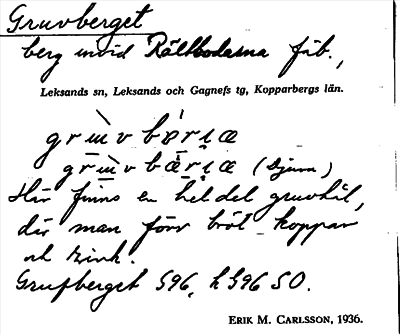 Gruvberget
berg invid Rältbodarna fäb.,
Leksands sn, Leksands och Gagnefs tg, Kopparbergs län.
grùv bæ̀rıæ
grùv bæ̀rıæ (Djura)
Här finns en hel del gruvhål,
där man förr bröt koppar
och zink.
Grufberget S96, h S96 SO.
ERIK M. CARLSSON, 1936.